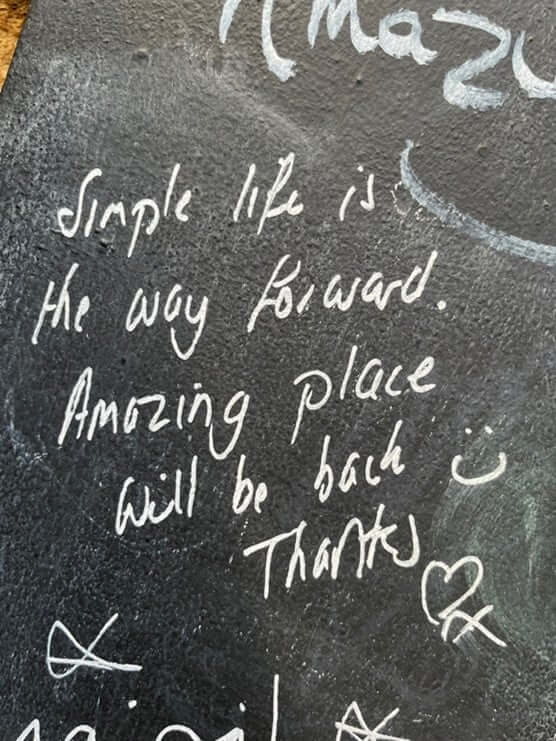 Simple life is
the way forward.
Amazing place
will be back :)
Thanks